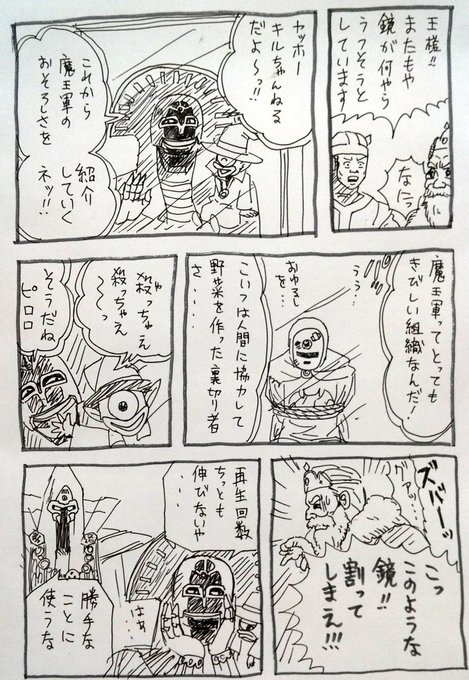 王様!!
またもや
鏡が何やら
うつそうと
しています
なにっ
ヤッホー
キルちゃんねる
だよ〜っ!!
これから
魔王軍の
おそろしさを
紹介
していく
ネッ!!
魔王軍ってとっても
きびしい組織なんだ!
うう…
おゆるし
を…
こいつは人間に協力して
野菜を作った裏切り者
さ・・・
殺っちゃえ
殺っちゃえ
〜っ
そうだね
ピロロ
ズバーッ
グァッ…
こっ
このような
鏡!!
割って
しまえ!!!
再生回数
ちっとも
伸びないや
・・・
はぁ…
勝手な
ことに
使うな